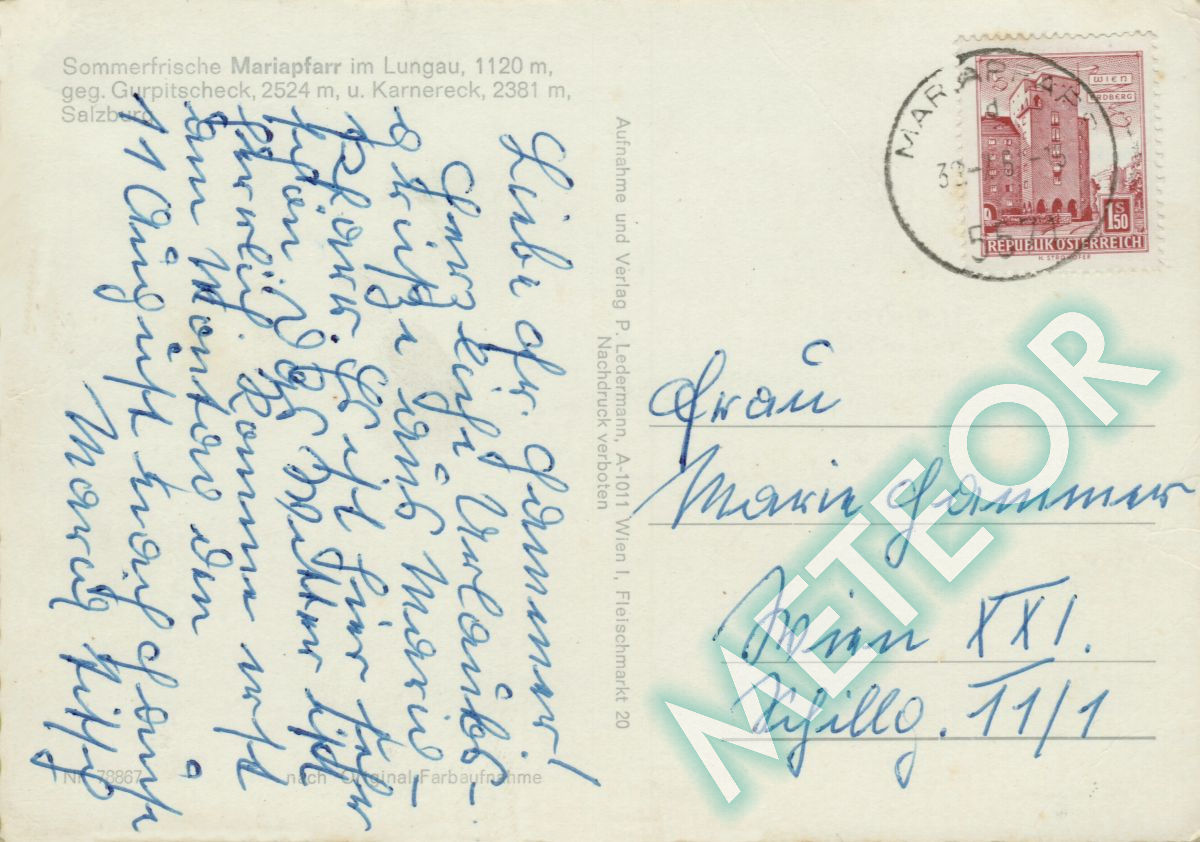 Sommerfrische Mariapfarr im Lungau, 1120 m,
geg. Gurpitscheck, 2524 m, u. Karnereck, 2381 m,
Salzburg
Liebe Fr. Hammer!
Herzliche Urlaubs-
grüße aus Maria-
pfarr. Es ist hier sehr
schön. Das Wetter ist
herrlich. Komme erst
am Montag den
11 August nach Hause
Maria
Nr. 78867
nach Original-Farbaufnahme
Aufnahme und Verlag P. Ledermann, A-1011 Wien I, Fleischmarkt 20
Nachdruck verboten
WIEN
ERDBERG
S
1,50
REPUBLIK ÖSTERREICH
MARIAPFARR
Frau
Marie Hammer
Wien XXI.
Schillg. 11/1
METEOR